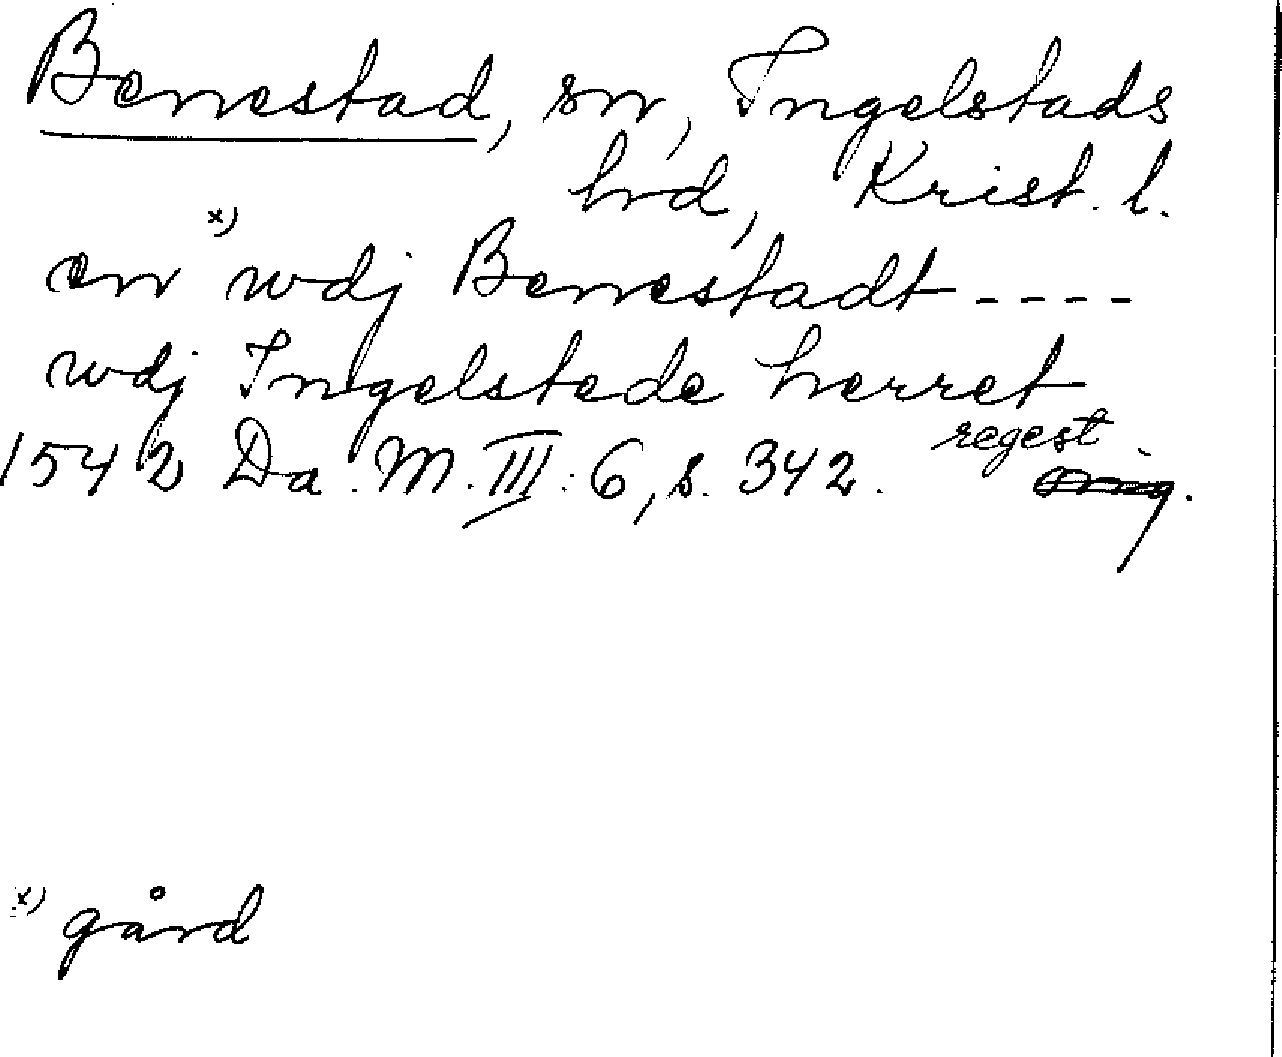 Benestad, sn, Ingelstads
hrd, Krist. l.
en x) wdj Benestadt ----
wdj Ingelstede herret
1542 Da. M. III: 6, s. 342. regest
x) gård